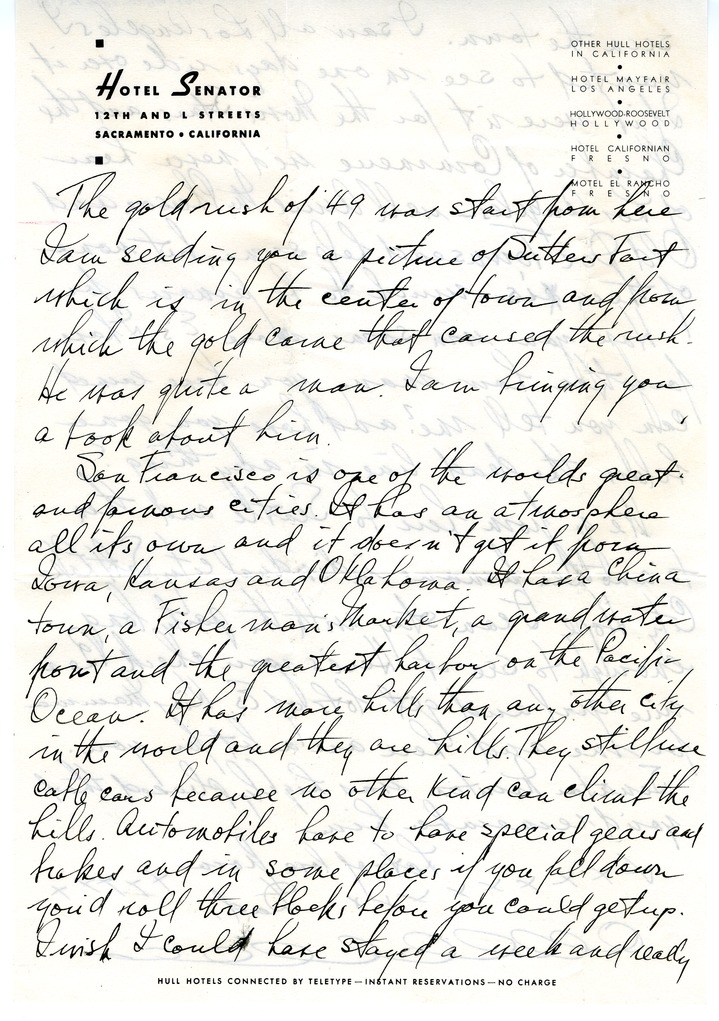 HOTEL SENATOR
12TH AND L STREETS
SACRAMENTO • CALIFORNIA
OTHER HULL HOTELS
IN CALIFORNIA
•
HOTEL MAYFAIR
LOS ANGELES
•
HOLLYWOOD-ROOSEVELT
HOLLYWOOD
•
HOTEL CALIFORNIAN
FRESNO
•
MOTEL EL RANCHO
FRESNO
The gold rush of '49 was start from here
I am sending you a picture of Sutters Fort
which is in the center of town and from
which the gold came that caused the rush.
He was quite a man. I am bringing you
a book about him.
San Francisco is one of the worlds great
and famous cities. It has an atmosphere
all its own and it doesn't get it from
Iowa, Kansas and Oklahoma. It has a China
town, a Fisherman's Market, a grand water
front and the greatest harbor on the Pacific
Ocean. It has more hills than any other city
in the world and they are hills. They still use
cable cars because no other kind can climb the
hills. Automobiles have to have special gears and
brakes and in some places if you fall down
you'd roll three blocks before you could get up.
I wish I could have stayed a week and really
HULL HOTELS CONNECTED BY TELETYPE—INSTANT RESERVATIONS—NO CHARGE